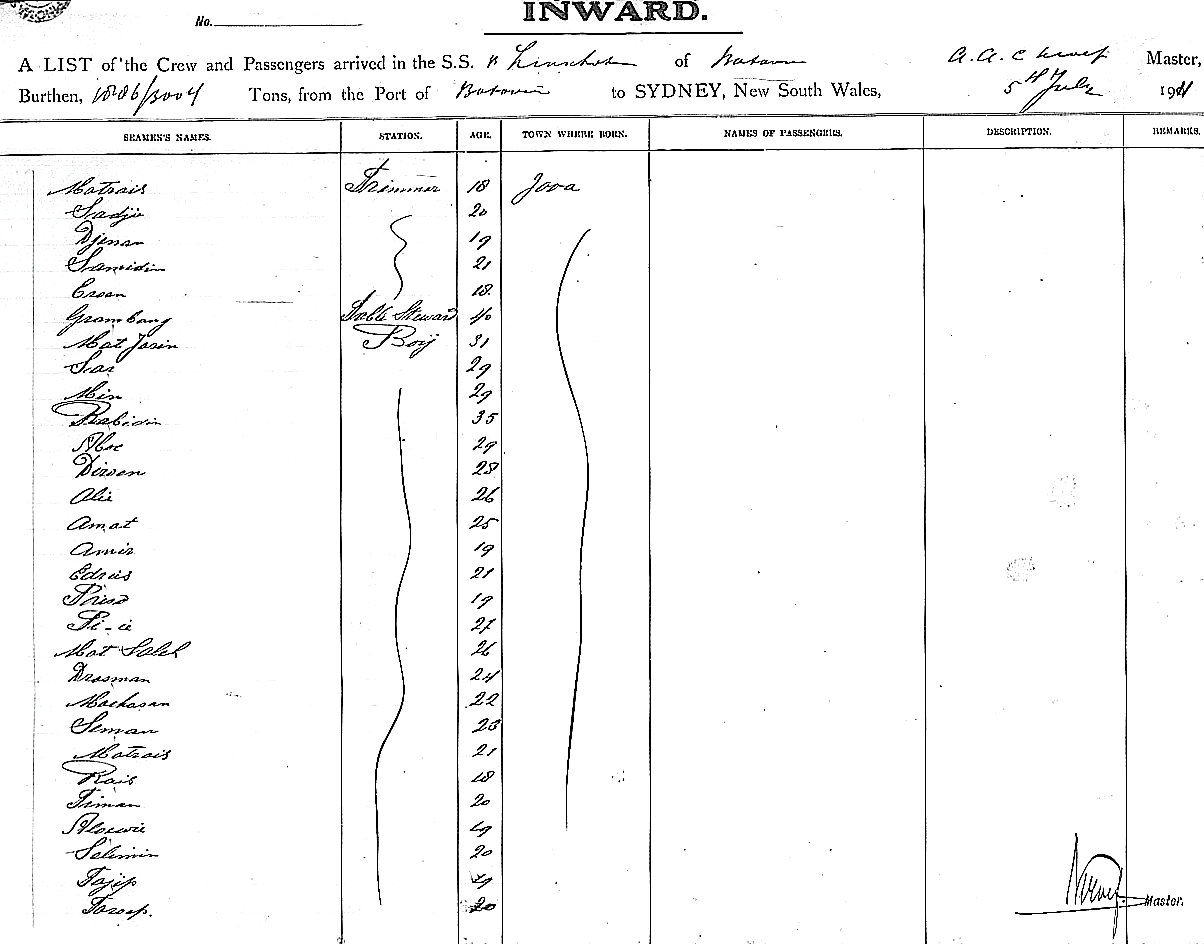 INWARD.
No.
A LIST of the Crew and Passengers arrived in the S.S. v Linschoten of Batavia A. A. C Master,
Burthen, 1886/3004 Tons, from the Port of Batavia to SYDNEY, New South Wales, 5th July 1911
SEAMEN'S NAMES. STATION. AGE. TOWN WHERE BORN. NAMES OF PASSENGERS. DESCRIPTION. REMARKS.
Matrais Trimmer 18 Java
Sadjie 20
Djenan 19
Samidin 21
18
Grambang Table Steward 40
Mat Jasin Boij 31
Sar 29
Min 29
Rabidin 35
29
Dirson 28
Alie 26
Amat 25
Amir 19
Edris 21
19
Pi-ie 27
Mat Saleh 26
Drasman 24
Machasan 22
Seman 23
Matrais 21
Rais 18
Timan 20
19
Selimin 20
Tajip 19
Taroep. 20
Master.